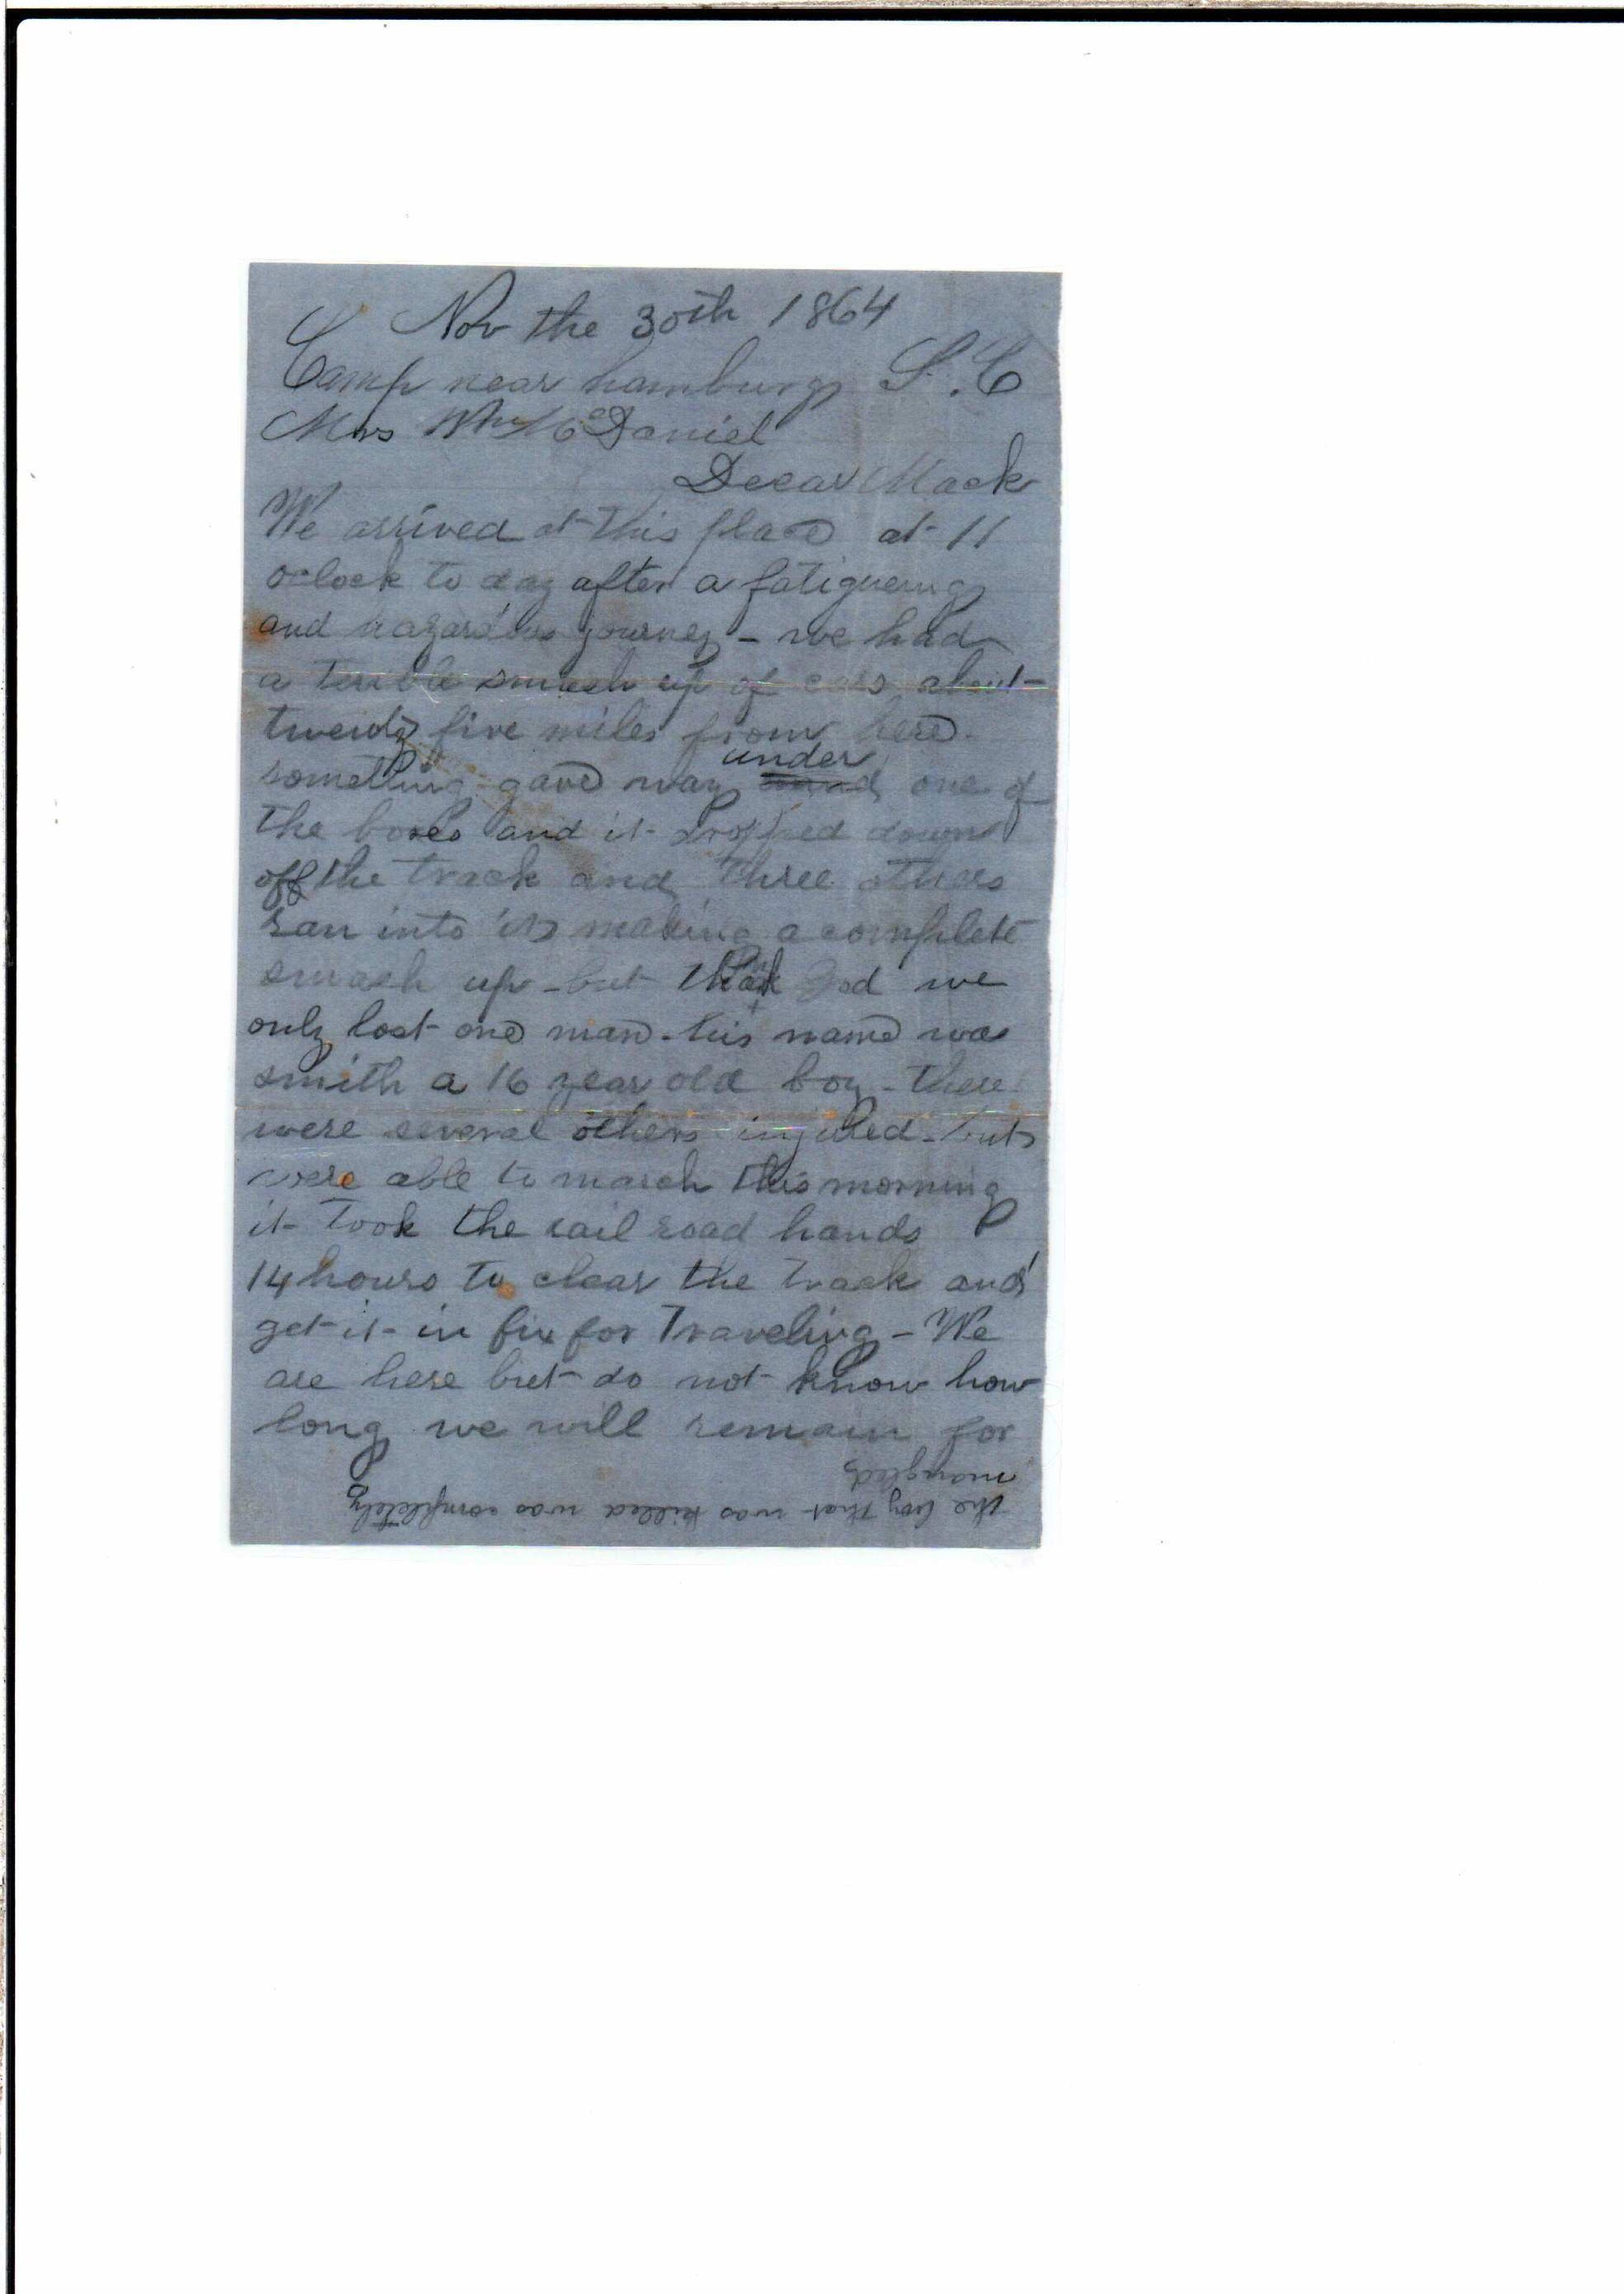 Nov the 30th 1864
Camp near hamburg S.C
Mrs Wm McDaniel
Deear Mack
We arrived at this place at 11
oclock to day after a fatigueing
and hazardous journey - we had
a terible smash up of cars about
twenty five miles from here.
something gave way under one of
the boxes and it dropped down
off the track and three others
ran into it making a complete
smash up - but thank God we
only lost one man - his name was
smith a 16 year old boy - there
were several others injured - but
were able to march this morning
it took the rail road hands
14 hours to clear the track and
get it in fix for Traveling - We
are here but do not know how
long we will remain for
the boy that was killed was completely
mangled